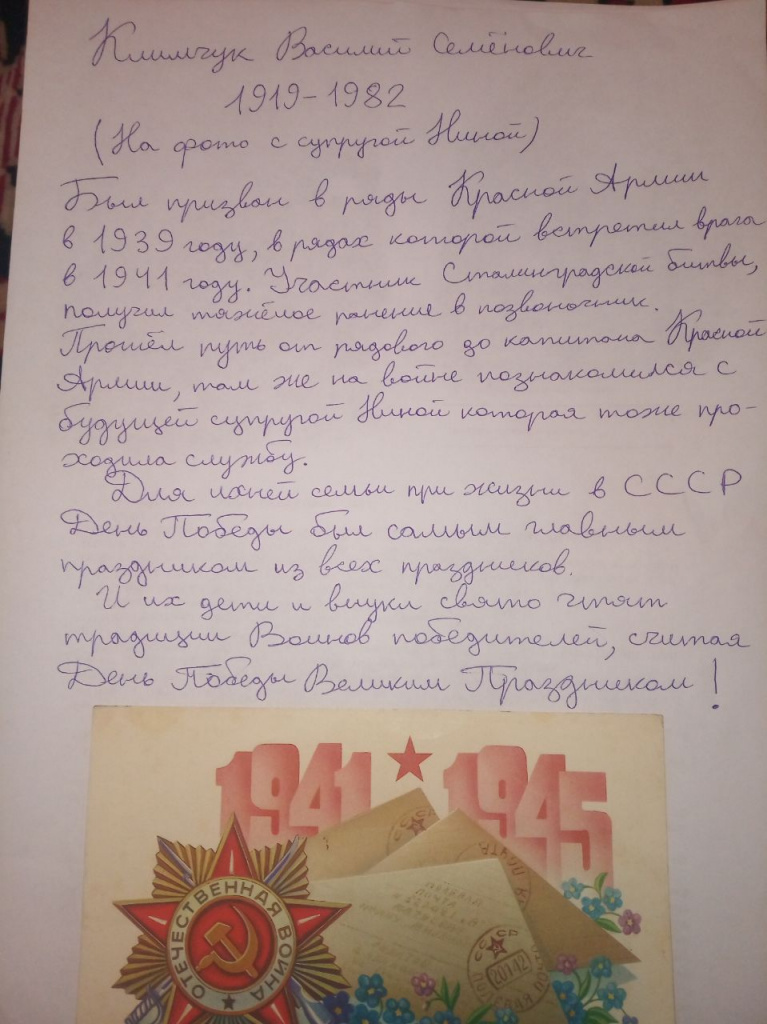 Климчук Василий Семёнович
1919-1982
(На фото с супругой Ниной)
Был призван в ряды Красной Армии
в 1939 году, в рядах которой встретил врага
в 1941 году. Участник Сталинградской битвы,
получил тяжёлое ранение в позвоночник.
Прошёл путь от рядового до капитана Красной
Армии, там же на войне познакомился с
будущей супругой Ниной которая тоже про-
ходила службу.
Для ихней семьи при жизни в СССР
День Победы был самым главным
праздником из всех праздников.
И их дети и внуки свято чтят
традиции Воинов победителей, считая
День Победы Великим Праздником!
1941 1945
ОТЕЧЕСТВЕННАЯ ВОЙНА
СССР